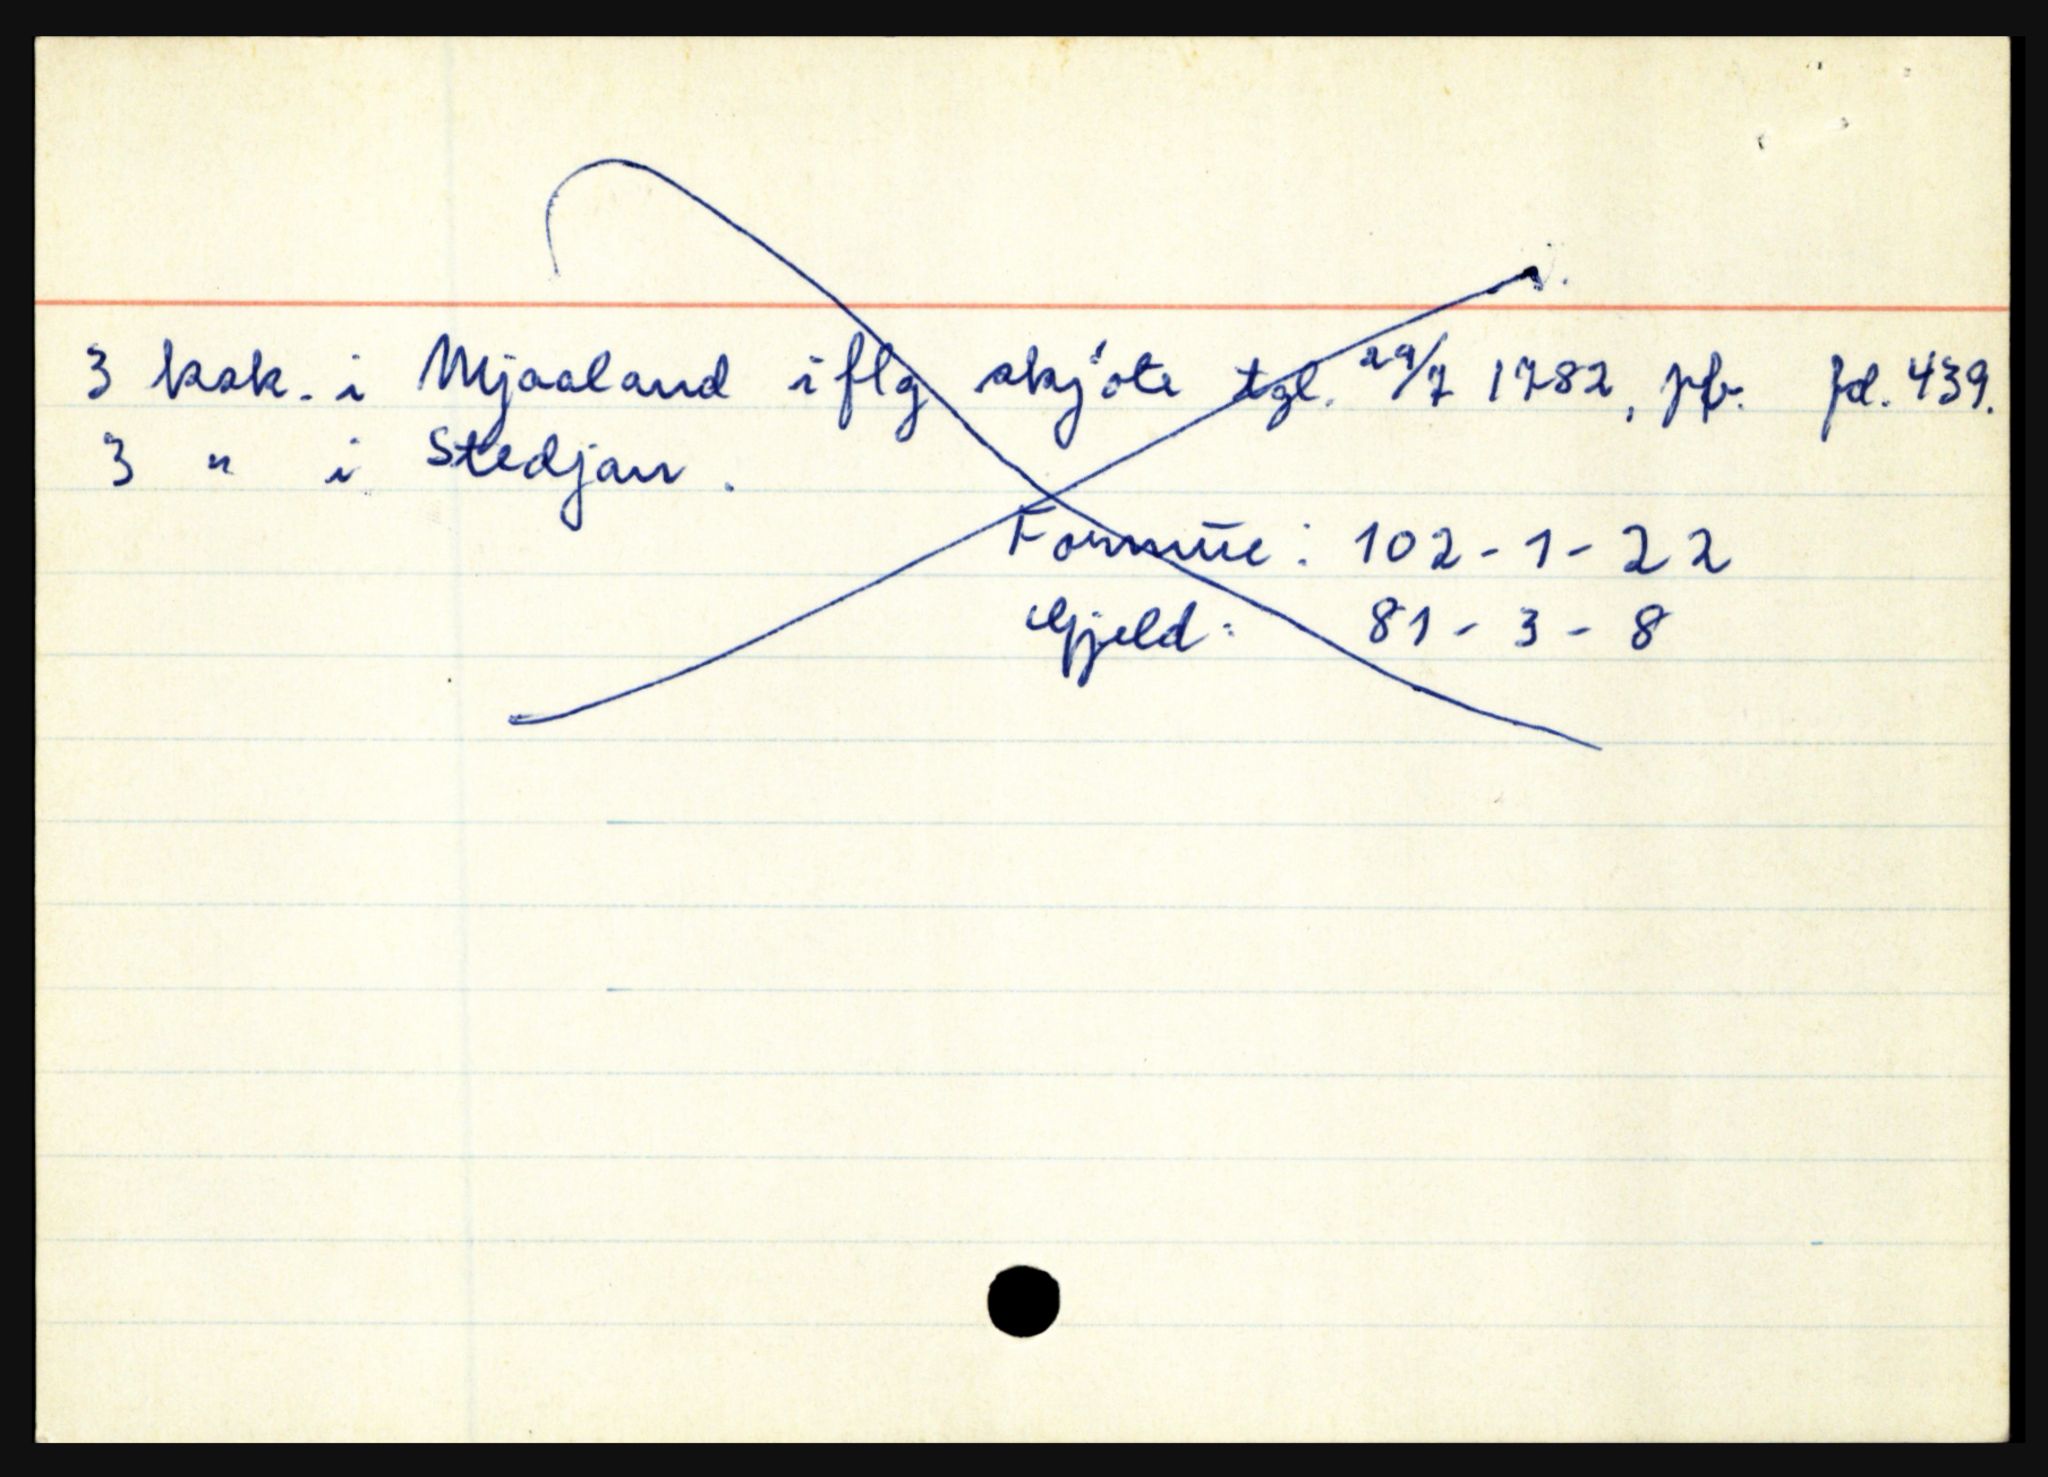 3 ksk. i Mjaaland iflg skjöte tgl. 29/7 1782, pb. fol. 439.
3 " i Stedjan.
Formüe: 102-1-22
Gjeld: 81-3-8